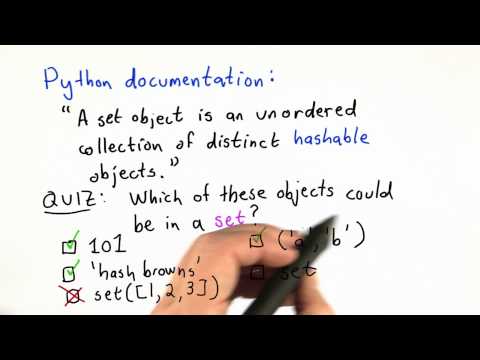 Python documentation:
"A set object is an unordered
collection of distinct hashable
objects."
QUIZ: Which of these objects could
be in a set?
101
('a', 'b')
'hash browns'
set
set([1,2,3])